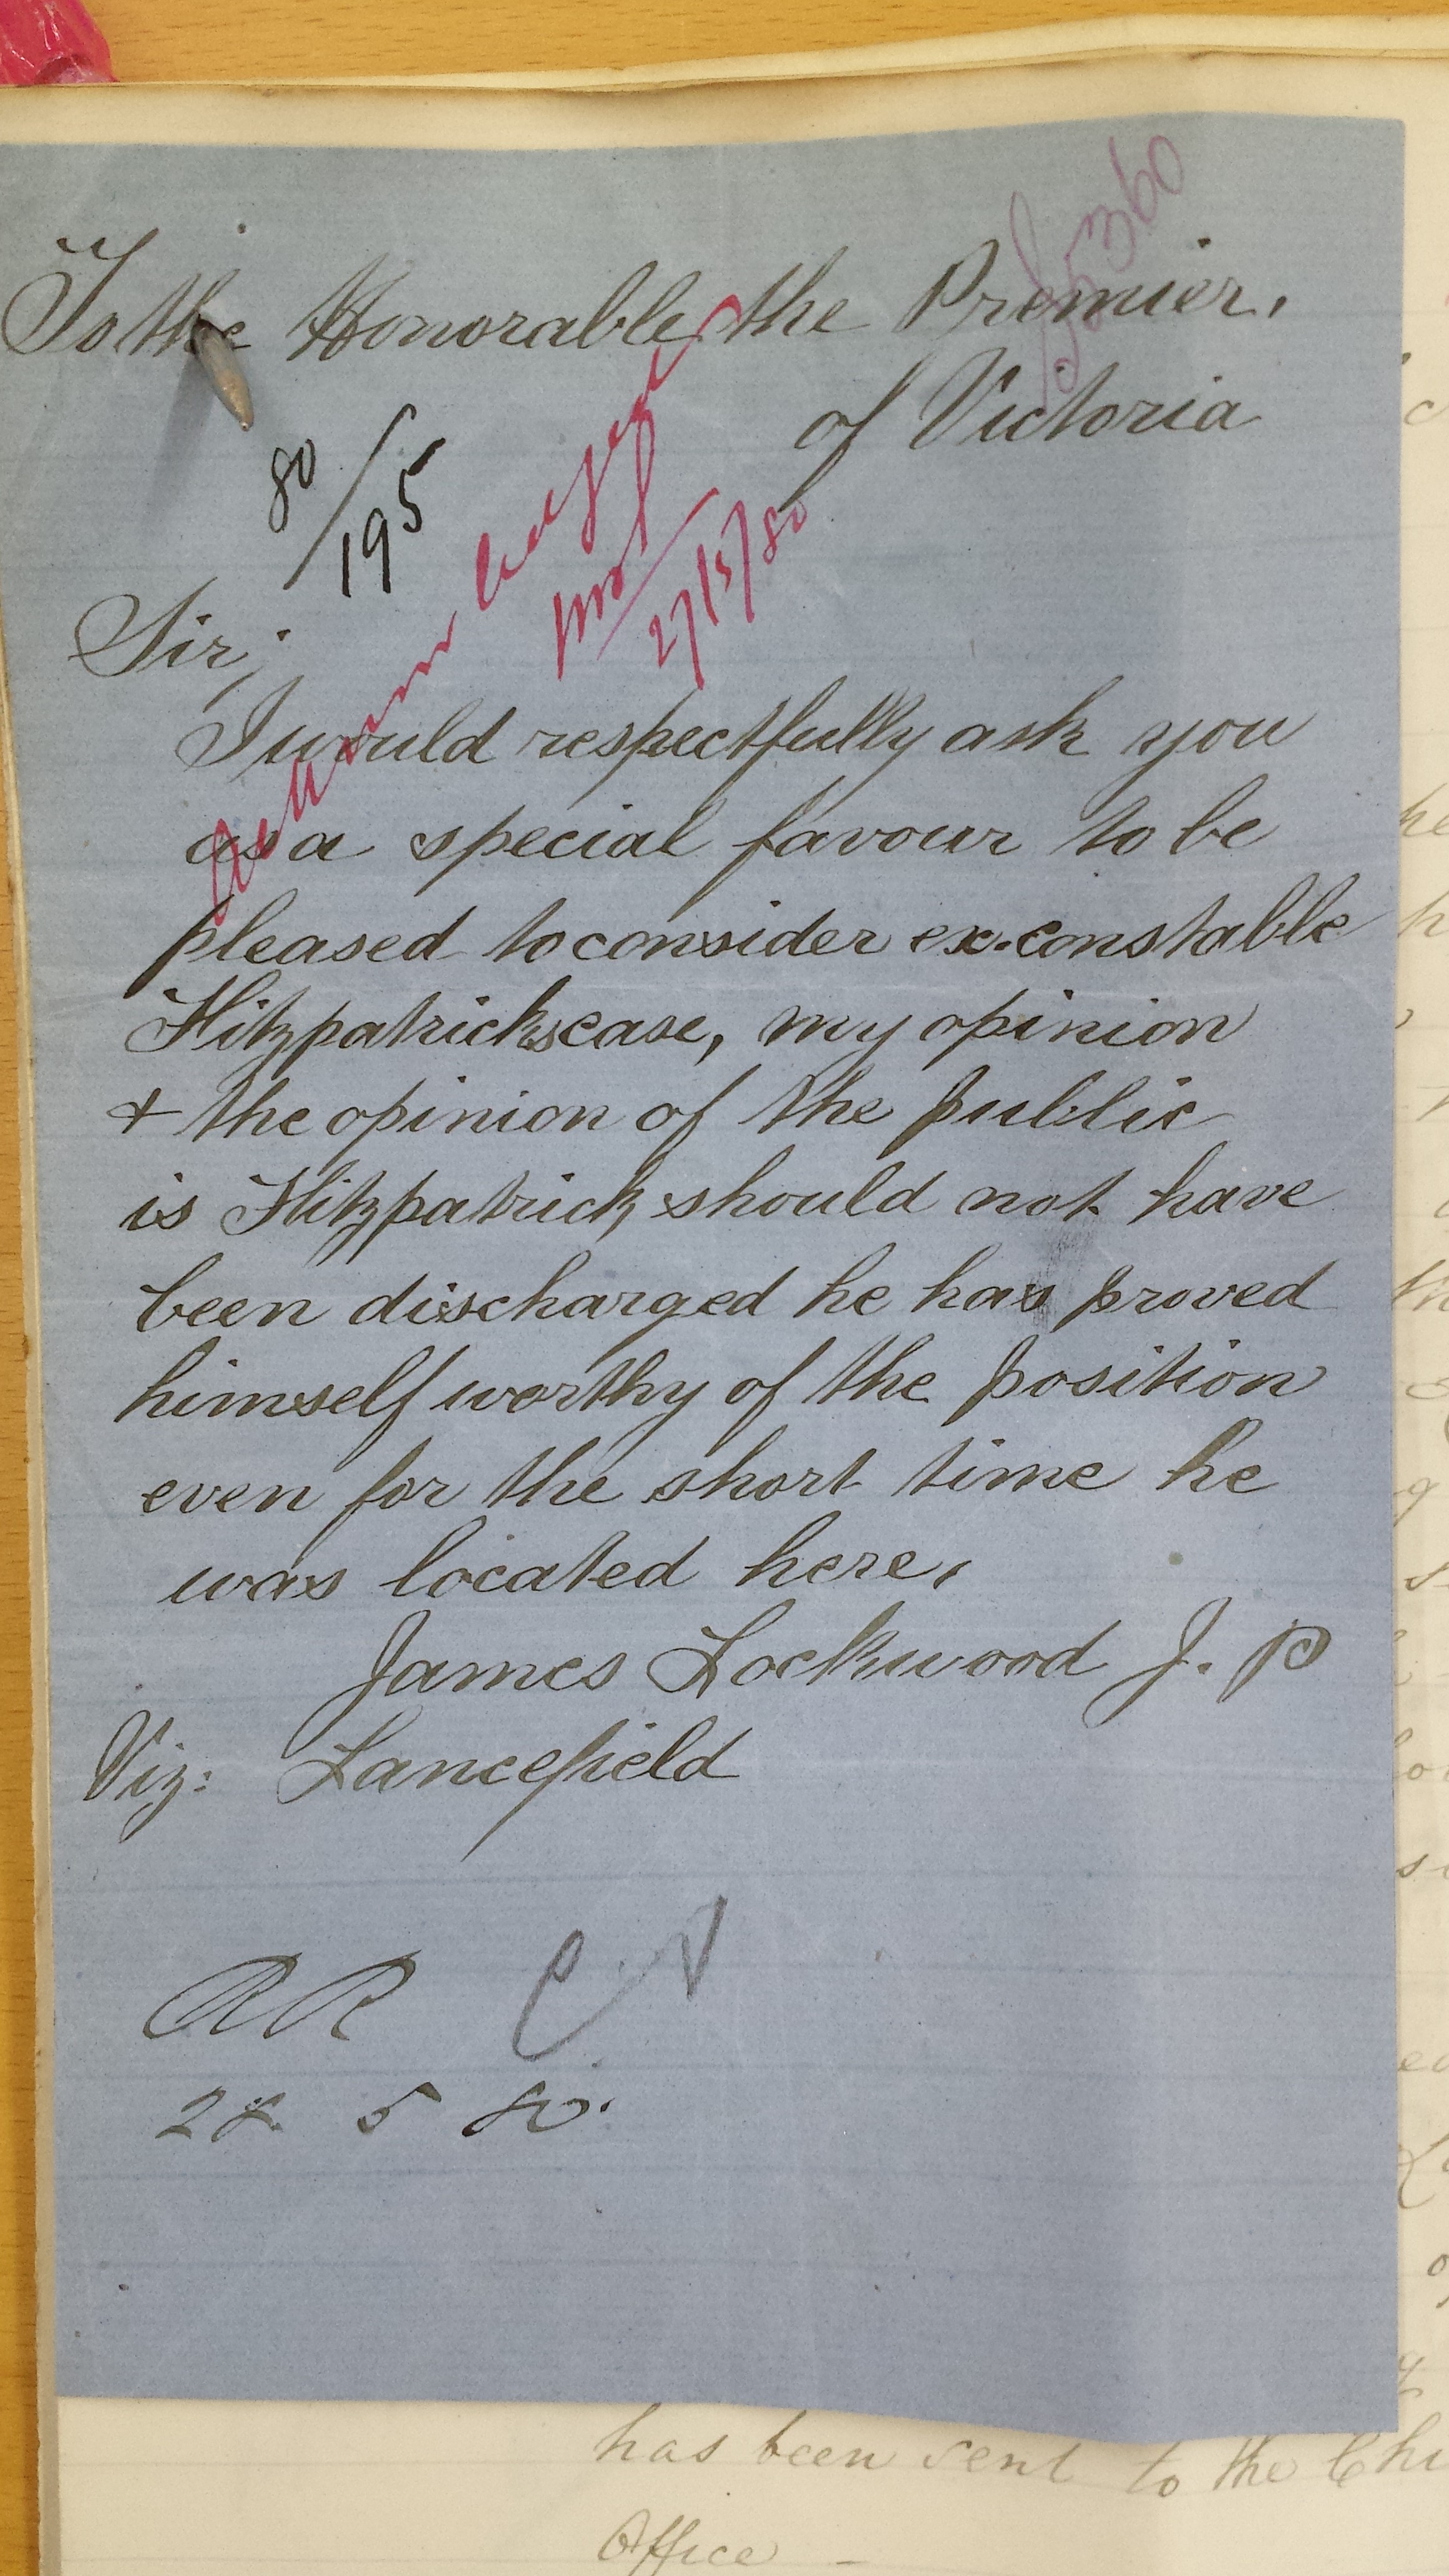 To the Honorable the Premier,
of Victoria
80/195
27/5/80
Sir,
I would respectfully ask you
as a special favour to be
pleased to consider ex-constable
Fitzpatricks case, my opinion
+ the opinion of the public
is Fitzpatrick should not have
been discharged he has proved
himself worthy of the position
even for the short time he
was located here,
James Lockwood J. P
Viz: Lancefield
28 5 80.
has been sent to the Chi
Office -